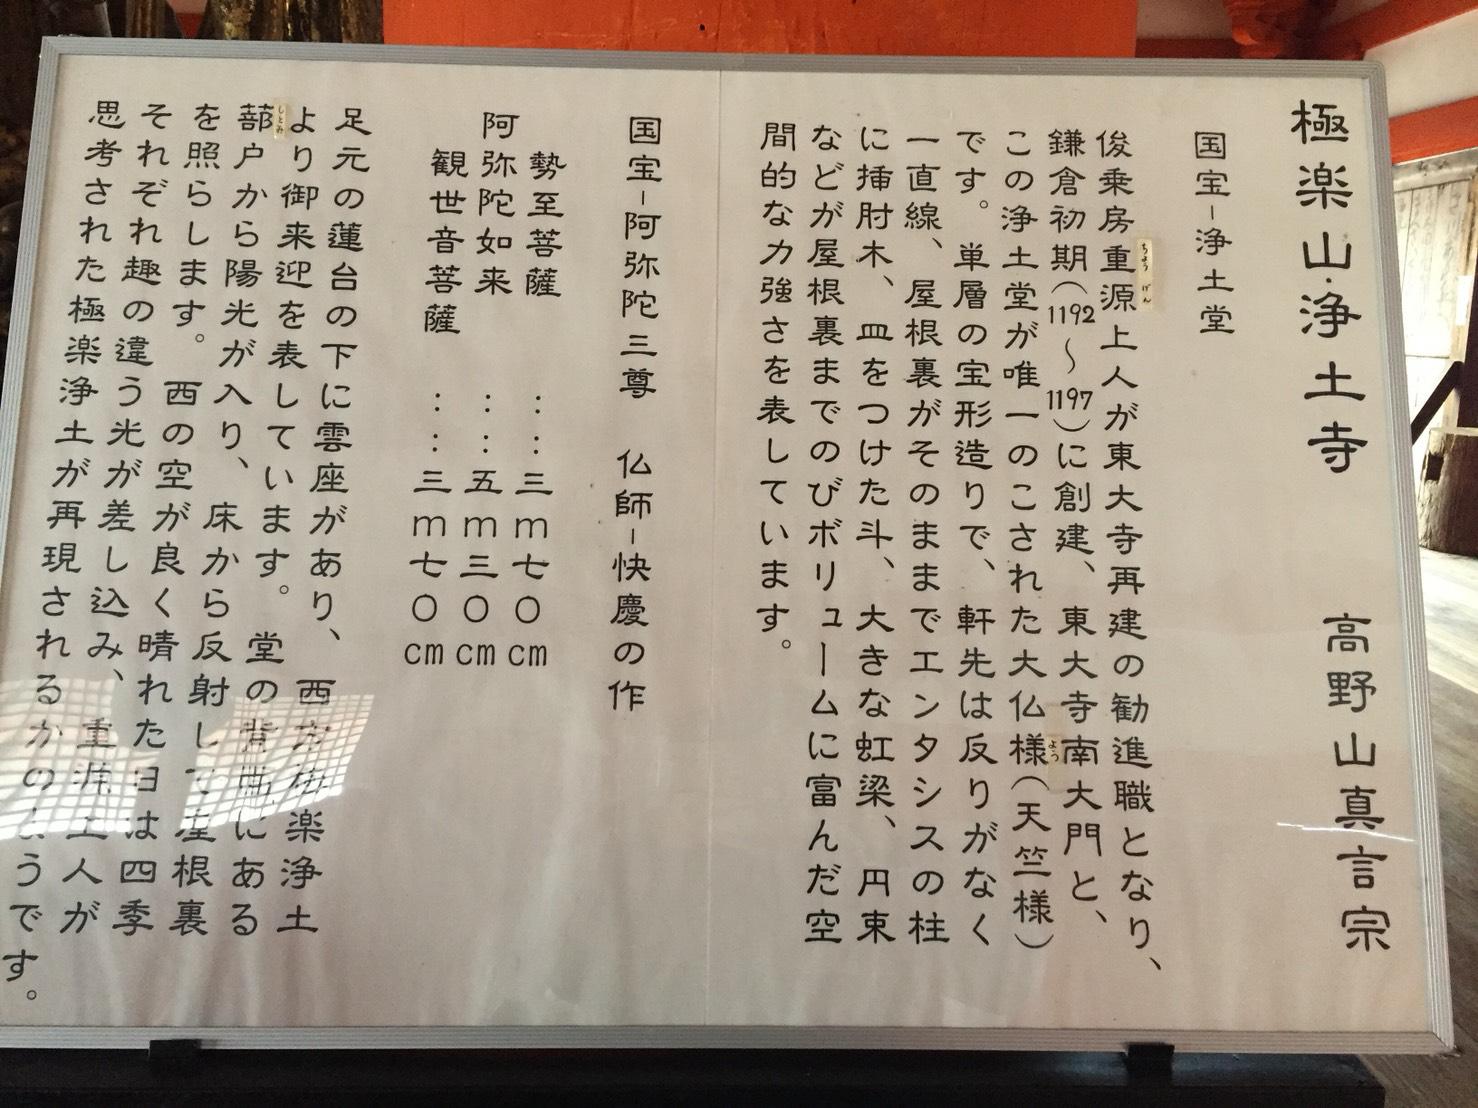 極楽山・浄土寺　高野山真言宗
国宝-浄土堂
俊乗房重源上人が東大寺再建の勧進職となり、
ちょうげん
鎌倉初期(1192〜1197)に創建、東大寺南大門と、
この浄土堂が唯一のこされた大仏様(天竺様)
よう
です。単層の宝形造りで、軒先は反りがなく
一直線、屋根裏がそのままでエンタシスの柱
に挿肘木、皿をつけた斗、大きな虹梁、円束
などが屋根裏までのびボリュームに富んだ空
間的な力強さを表しています。
国宝-阿弥陀三尊　仏師-快慶の作
勢至菩薩　‥‥三m七〇cm
阿弥陀如来　‥‥五m三〇cm
観世音菩薩　‥‥三m七〇cm
足元の蓮台の下に雲座があり、西方極楽浄土
より御来迎を表しています。堂の背面にある
蔀戸から陽光が入り、床から反射して屋根裏
しとみ
を照らします。西の空が良く晴れた日は四季
それぞれ趣の違う光が差し込み、重源上人が
思考された極楽浄土が再現されるかのようです。